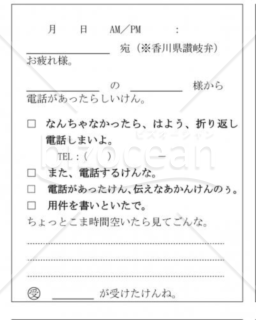 月　日　AM／PM　：
宛（※香川県讃岐弁）
お疲れ様。
の　様から
電話があったらしいけん。
□ なんちゃなかったら、はよう、折り返し
電話しまいよ。
TEL：（　）　－
□ また、電話するけんな。
□ 電話があったけん、伝えなあかんけんのぅ。
□ 用件を書いといたで。
ちょっとこま時間空いたら見てごんな。
受 が受けたけんね。
bizocean